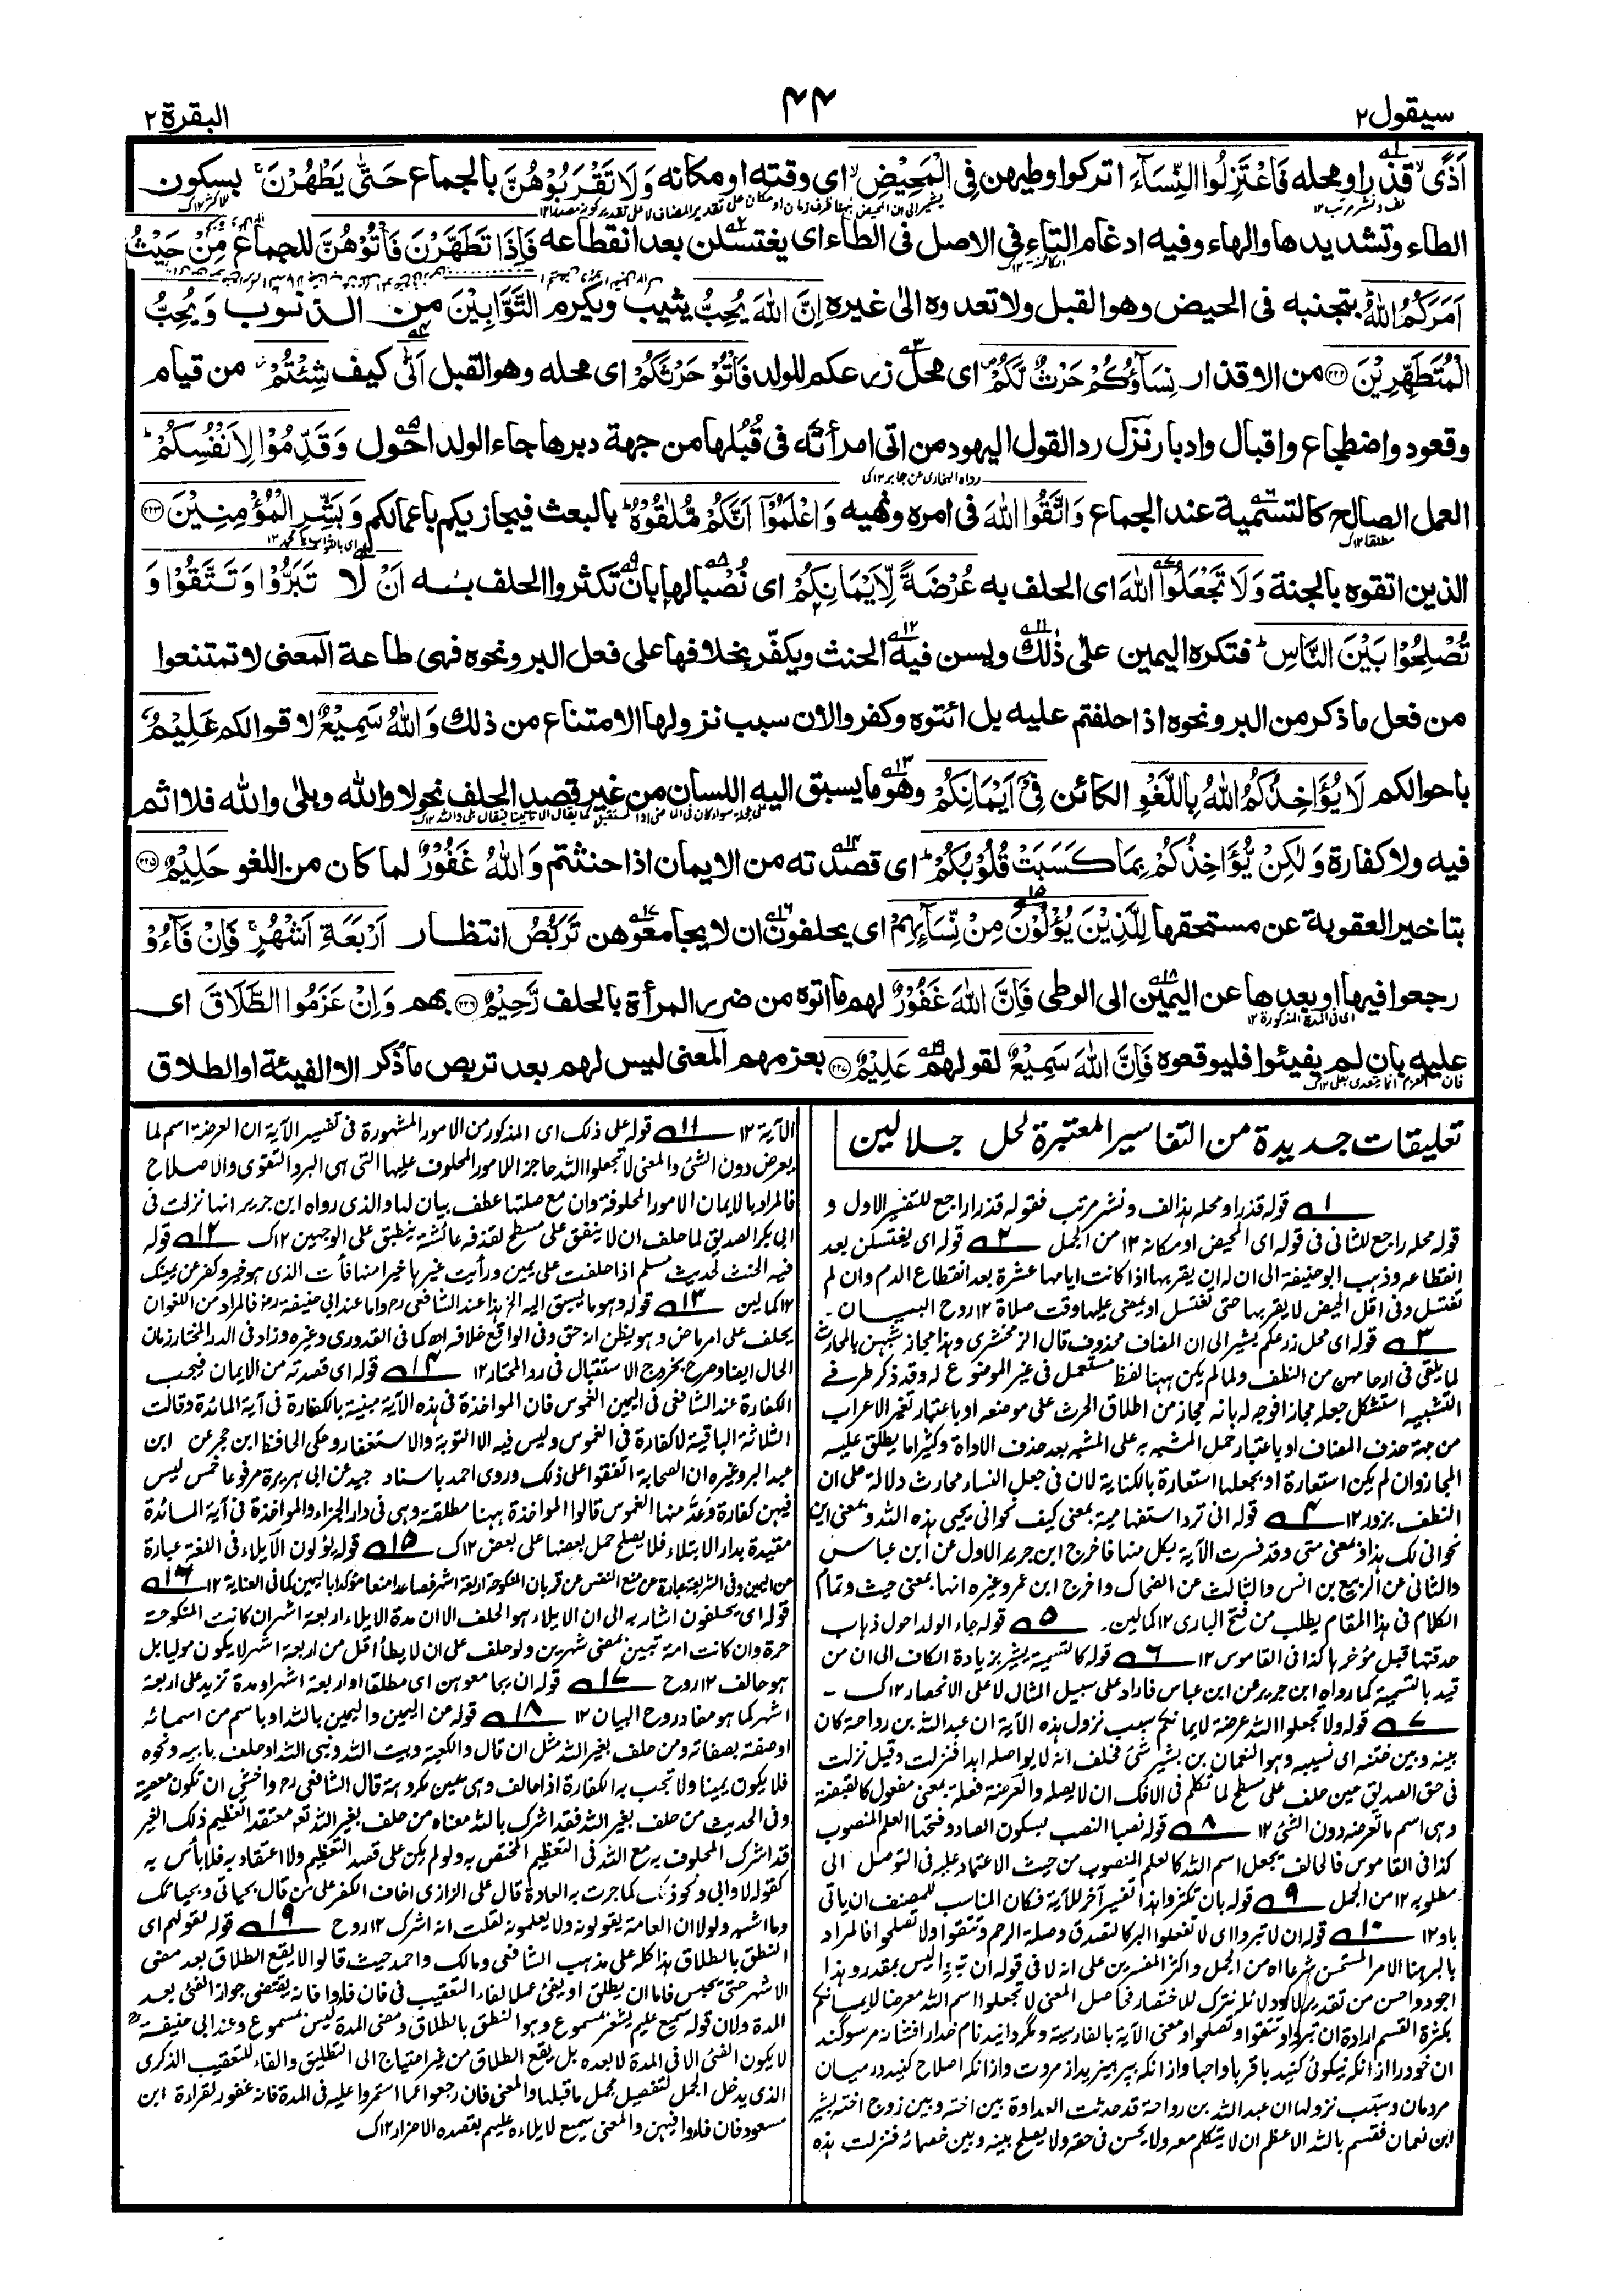 سيقول٢
٤٤
البقرة ٢
اَذًى قذر او محله فَاعْتَزِلُوا النِّسَآءَ اتركوا وطيهن فِى الْمَحِيْضِ اى وقته او مكانه وَلَا تَقْرَبُوْهُنَّ بالجماع حَتّٰى يَطْهُرْنَ بسكون
الطاء وتشديدها والهاء وفيه ادغام التاء فى الاصل فى الطاء اى يغتسلن بعد انقطاعه فَاِذَا تَطَهَّرْنَ فَاْتُوْهُنَّ للجماع مِنْ حَيْثُ
اَمَرَكُمُ اللّٰهُ بتجنبه فى الحيض وهو القبل ولا تعدوه الى غيره اِنَّ اللّٰهَ يُحِبُّ يثيب ويكرم التَّوَّابِيْنَ من الذنوب وَيُحِبُّ
الْمُتَطَهِّرِيْنَ ۝٢٢٢ من الاقذار نِسَآؤُكُمْ حَرْثٌ لَّكُمْ اى محل زرعكم للولد فَاْتُوْا حَرْثَكُمْ اى محله وهو القبل اَنّٰى كيف شِئْتُمْ من قيام
وقعود واضطجاع واقبال وادبار نزل ردا لقول اليهود من اتى امرأته فى قُبُلها من جهة دبرها جاء الولد احول وَقَدِّمُوْا لِاَنْفُسِكُمْ
رواه البخارى عن جابر ١٢ك
العمل الصالح كالتسمية عند الجماع وَاتَّقُوا اللّٰهَ فى امره ونهيه وَاعْلَمُوْٓا اَنَّكُمْ مُّلٰقُوْهُ بالبعث فيجازيكم باعمالكم وَبَشِّرِ الْمُؤْمِنِيْنَ ۝٢٢٣
الذين اتقوه بالجنة وَلَا تَجْعَلُوا اللّٰهَ اى الحلف به عُرْضَةً لِّاَيْمَانِكُمْ اى نُصُبا لها بان تكثروا الحلف به اَنْ لا تَبَرُّوْا وَتَتَّقُوْا وَ
تُصْلِحُوْا بَيْنَ النَّاسِ فتكره اليمين على ذلك ويسن فيه الحنث ويكفّر بخلافها على فعل البر ونحوه فهى طاعة المعنى لا تمتنعوا
من فعل ما ذكر من البر ونحوه اذا حلفتم عليه بل ائتوه وكفروا لان سبب نزولها الامتناع من ذلك وَاللّٰهُ سَمِيْعٌ لاقوالكم عَلِيْمٌ
باحوالكم لَا يُؤَاخِذُكُمُ اللّٰهُ بِاللَّغْوِ الكائن فِىْٓ اَيْمَانِكُمْ وهو ما يسبق اليه اللسان من غير قصد الحلف نحو لا والله وبلى والله فلا اثم
فيه ولا كفارة وَلٰكِنْ يُّؤَاخِذُكُمْ بِمَا كَسَبَتْ قُلُوْبُكُمْ اى قصدته من الايمان اذا حنثتم وَاللّٰهُ غَفُوْرٌ لما كان من اللغو حَلِيْمٌ ۝٢٢٥
بتاخير العقوبة عن مستحقها لِلَّذِيْنَ يُؤْلُوْنَ مِنْ نِّسَآئِهِمْ اى يحلفون ان لا يجامعوهن تَرَبُّصُ انتظار اَرْبَعَةِ اَشْهُرٍ فَاِنْ فَآءُوْ
رجعوا فيها او بعدها عن اليمين الى الوطى فَاِنَّ اللّٰهَ غَفُوْرٌ لهم ما اتوه من ضرر المرأة بالحلف رَّحِيْمٌ ۝٢٢٦ بهم وَاِنْ عَزَمُوا الطَّلَاقَ اى
عليه بان لم يفيئوا فليوقعوه فَاِنَّ اللّٰهَ سَمِيْعٌ لقولهم عَلِيْمٌ ۝٢٢٧ بعزمهم المعنى ليس لهم بعد تربص ما ذكر الا الفيئة او الطلاق
تعليقات جديدة من التفاسير المعتبرة لحل جلالين
١ قوله قذر او محله هذا لف ونشر مرتب فقوله قذر راجع للتفسير الاول و
قوله محله راجع للثانى فى قوله اى المحيض او مكانه ١٢ من الجمل ٢ قوله اى يغتسلن بعد
انقطاعه وذهب ابو حنيفة الى ان له ان يقربها اذا كانت ايامها عشرة بعد انقطاع الدم وان لم
تغتسل وفى اقل الحيض لا يقربها حتى تغتسل او يمضى عليها وقت صلاة ١٢ روح البيان۔
٣ قوله اى محل زرعكم يشير الى ان المضاف محذوف قال الزمخشرى وهذا مجاز شبهن بالمحارث
لما يلقى فى ارحامهن من النطف ولما لم يكن ههنا لفظ مستعمل فى غير الموضوع له وقد ذكر طرفے
التشبيه استشكل جعله مجازا فوجه له بانه مجاز من اطلاق الحرث على موضعه او باعتبار تغير الاعراب
من جهة حذف المضاف او باعتبار حمل المشبه به على المشبه بعد حذف الاداة وكثيرا ما يطلق عليه
المجاز وان لم يكن استعارة او بجعلها استعارة بالكناية لان فى جعل النساء محارث دلالة على ان
النطف بزور ١٢ ٤ قوله انى ترد استفهامية بمعنى كيف نحو انى يحيى هذه الله وبمعنى اين
نحو انى لك هذا وبمعنى متى وقد فسرت الآية بكل منها فاخرج ابن جرير الاول عن ابن عباس
والثانى عن الربيع بن انس والثالث عن الضحاك واخرج ابن عمر وغيره انها بمعنى حيث وتمام
الكلام فى هذا المقام يطلب من فتح البارى ١٢ كمالين۔ ٥ قوله جاء الولد احول ذهاب
حدقتها قبل مؤخرها كذا فى القاموس ١٢ ٦ قوله كالتسمية يشير بزيادة الكاف الى ان من
قيد بالتسمية كما رواه ابن جرير عن ابن عباس فاراد على سبيل المثال لا على الانحصار ١٢ك۔
٧ قوله ولا تجعلوا الله عرضة لايمانكم سبب نزول هذه الآية ان عبد الله بن رواحة كان
بينه وبين ختنه اى نسيبه وهو النعمان بن بشير شئ فحلف انه لا يواصله ابدا فنزلت وقيل نزلت
فى حق الصديق حين حلف على مسطح لما تكلم فى الافك ان لا يصله والعرضة فعلة بمعنى مفعول كالقبضة
وهى اسم ما تعرضه دون الشئ ١٢ ٨ قوله نصبا النصب بسكون الصاد وفتحها العلم المنصوب
كذا فى القاموس فالحالف يجعل اسم الله كالعلم المنصوب من حيث الاعتماد عليه فى التوصل الى
مطلوبه ١٢ من الجمل ٩ قوله بان تكثروا هذا تفسير آخر للآية فكان المناسب للمصنف ان ياتى
باو ١٢ ١٠ قوله ان لا تبروا اى لا تفعلوا البر كالتصدق وصلة الرحم وتتقوا ولا تصلحوا فالمراد
بالبر هنا الامر المستحسن شرعا اه من الجمل واكثر المفسرين على انه لا فى قوله ان تبروا ليس بمقدر وهذا
اجود واحسن من تقدير لا ودلائله نترك للاختصار فحاصل المعنى لا تجعلوا اسم الله معرضا لايمانكم
بكثرة القسم ارادة ان تبروا وتتقوا وتصلحوا ومعنى الآية بالفارسية ومگردانيد نام خدا را نشانه مر سوگند
ان خود را از انكه نيكوئى كنيد باقربا واحبا واز انكه بپرهيزيد از مروت واز انكه اصلاح كنيد درميان
مردمان وسبب نزولها ان عبد الله بن رواحة قد حدثت العداوة بين اخته وبين زوج اخته بشير
ابن نعمان فقسم بالله الاعظم ان لا يتكلم معه ولا يحسن فى حقه ولا يصلح بينه وبين خصمائه فنزلت هذه
الآية ١٢ ١١ قوله على ذلك اى المذكور من الامور المشهورة فى تفسير الآية ان العرضة اسم لما
يعرض دون الشئ والمعنى لا تجعلوا الله حاجزا للامور المحلوف عليها التى هى البر والتقوى والاصلاح
فالمراد بالايمان الامور المحلوفة وان مع صلتها عطف بيان لها والذى رواه ابن جرير انها نزلت فى
ابى بكر الصديق لما حلف ان لا ينفق على مسطح لقذفه عائشة ينطبق على الوجهين ١٢ك ١٢ قوله
فيه الحنث لحديث مسلم اذا حلفت على يمين ورأيت غيرها خيرا منها فأت الذى هو خير وكفر عن يمينك
١٢ كمالين ١٣ قوله وهو ما يسبق اليه الخ هذا عند الشافعى رح واما عند ابى حنيفة رح فالمراد من اللغو ان
يحلف على امر ماض وهو يظن انه حق وفى الواقع خلافه اه كما فى القدورى وغيره وزاد فى الدر المختار زمان
الحال ايضا وصرح بخروج الاستقبال فى رد المحتار ١٢ ١٤ قوله اى قصدته من الايمان فيجب
الكفارة عند الشافعى فى اليمين الغموس فان المواخذة فى هذه الآية مبنية بالكفارة فى آية المائدة وقالت
الثلاثة الباقية لا كفارة فى الغموس وليس فيه الا التوبة والاستغفار وحكى الحافظ ابن حجر عن ابن
عبد البر وغيره ان الصحابة اتفقوا على ذلك وروى احمد باسناد جيد عن ابى هريرة مرفوعا خمس ليس
فيهن كفارة وعدّ منها الغموس قالوا المواخذة ههنا مطلقة وهى فى دار الجزاء والمواخذة فى آية المائدة
مقيدة بدار الابتلاء فلا يصلح حمل بعضها على بعض ١٢ك ١٥ قوله يؤلون الايلاء فى اللغة عبارة
عن اليمين وفى الشريعة عبارة عن منع النفس عن قربان المنكوحة اربعة اشهر فصاعدا منعا مؤكدا باليمين كما فى العناية ١٢ ١٦
قوله اى يحلفون اشار به الى ان الايلاء هو الحلف الا ان مدة الايلاء اربعة اشهر ان كانت المنكوحة
حرة وان كانت امة تبين بمضى شهرين ولو حلف على ان لا يطأ اقل من اربعة اشهر لا يكون موليا بل
هو حالف ١٢ روح ١٧ قوله ان يجامعوهن اى مطلقا او اربعة اشهر او مدة تزيد على اربعة
اشهر كما هو مفاد روح البيان ١٢ ١٨ قوله من اليمين واليمين بالله او باسم من اسمائه
او صفة بصفاته ومن حلف بغير الله مثل ان قال والكعبة وبيت الله ونبى الله او حلف بابيه ونحوه
فلا يكون يمينا ولا تجب به الكفارة اذا حالف وهى يمين مكروهة قال الشافعى رح واخشى ان تكون معصية
وفى الحديث من حلف بغير الله فقد اشرك بالله معناه من حلف بغير الله تعالى معتقدا تعظيم ذلك الغير
فقد اشرك المحلوف به مع الله فى التعظيم المختص به ولو لم يكن على قصد التعظيم ولا اعتقاد به فلا بأس به
كقوله لا وابى ونحو ذلك كما جرت به العادة قال على الرازى اخاف الكفر على من قال بحياتى وبحياتك
وما اشبهه ولولا ان العامة يقولونه ولا يعلمونه لقلت انه اشرك ١٢ روح ١٩ قوله لقولهم اى
النطق بالطلاق هذا كله على مذهب الشافعى ومالك واحمد حيث قالوا لا يقع الطلاق بعد مضى
الاشهر حتى يحبس فاما ان يطلق او يفئ عملا لفاء التعقيب فى فان فاءوا فانه يقتضى جواز الفئ بعد
المدة ولان قوله سميع عليم يشعر بمسموع وهو النطق بالطلاق ومضى المدة ليس بمسموع وعند ابى حنيفة رح
لا يكون الفئ الا فى المدة لا بعده بل يقع الطلاق من غير احتياج الى التطليق والفاء للتعقيب الذكرى
الذى يدخل الجمل لتفصيل مجمل ما قبلها والمعنى فان رجعوا عما استمروا عليه فى المدة فانه غفور لقراءة ابن
مسعود فان فاءوا فيهن والمعنى سميع لايلاءه عليم بقصده الاضرار ١٢ك